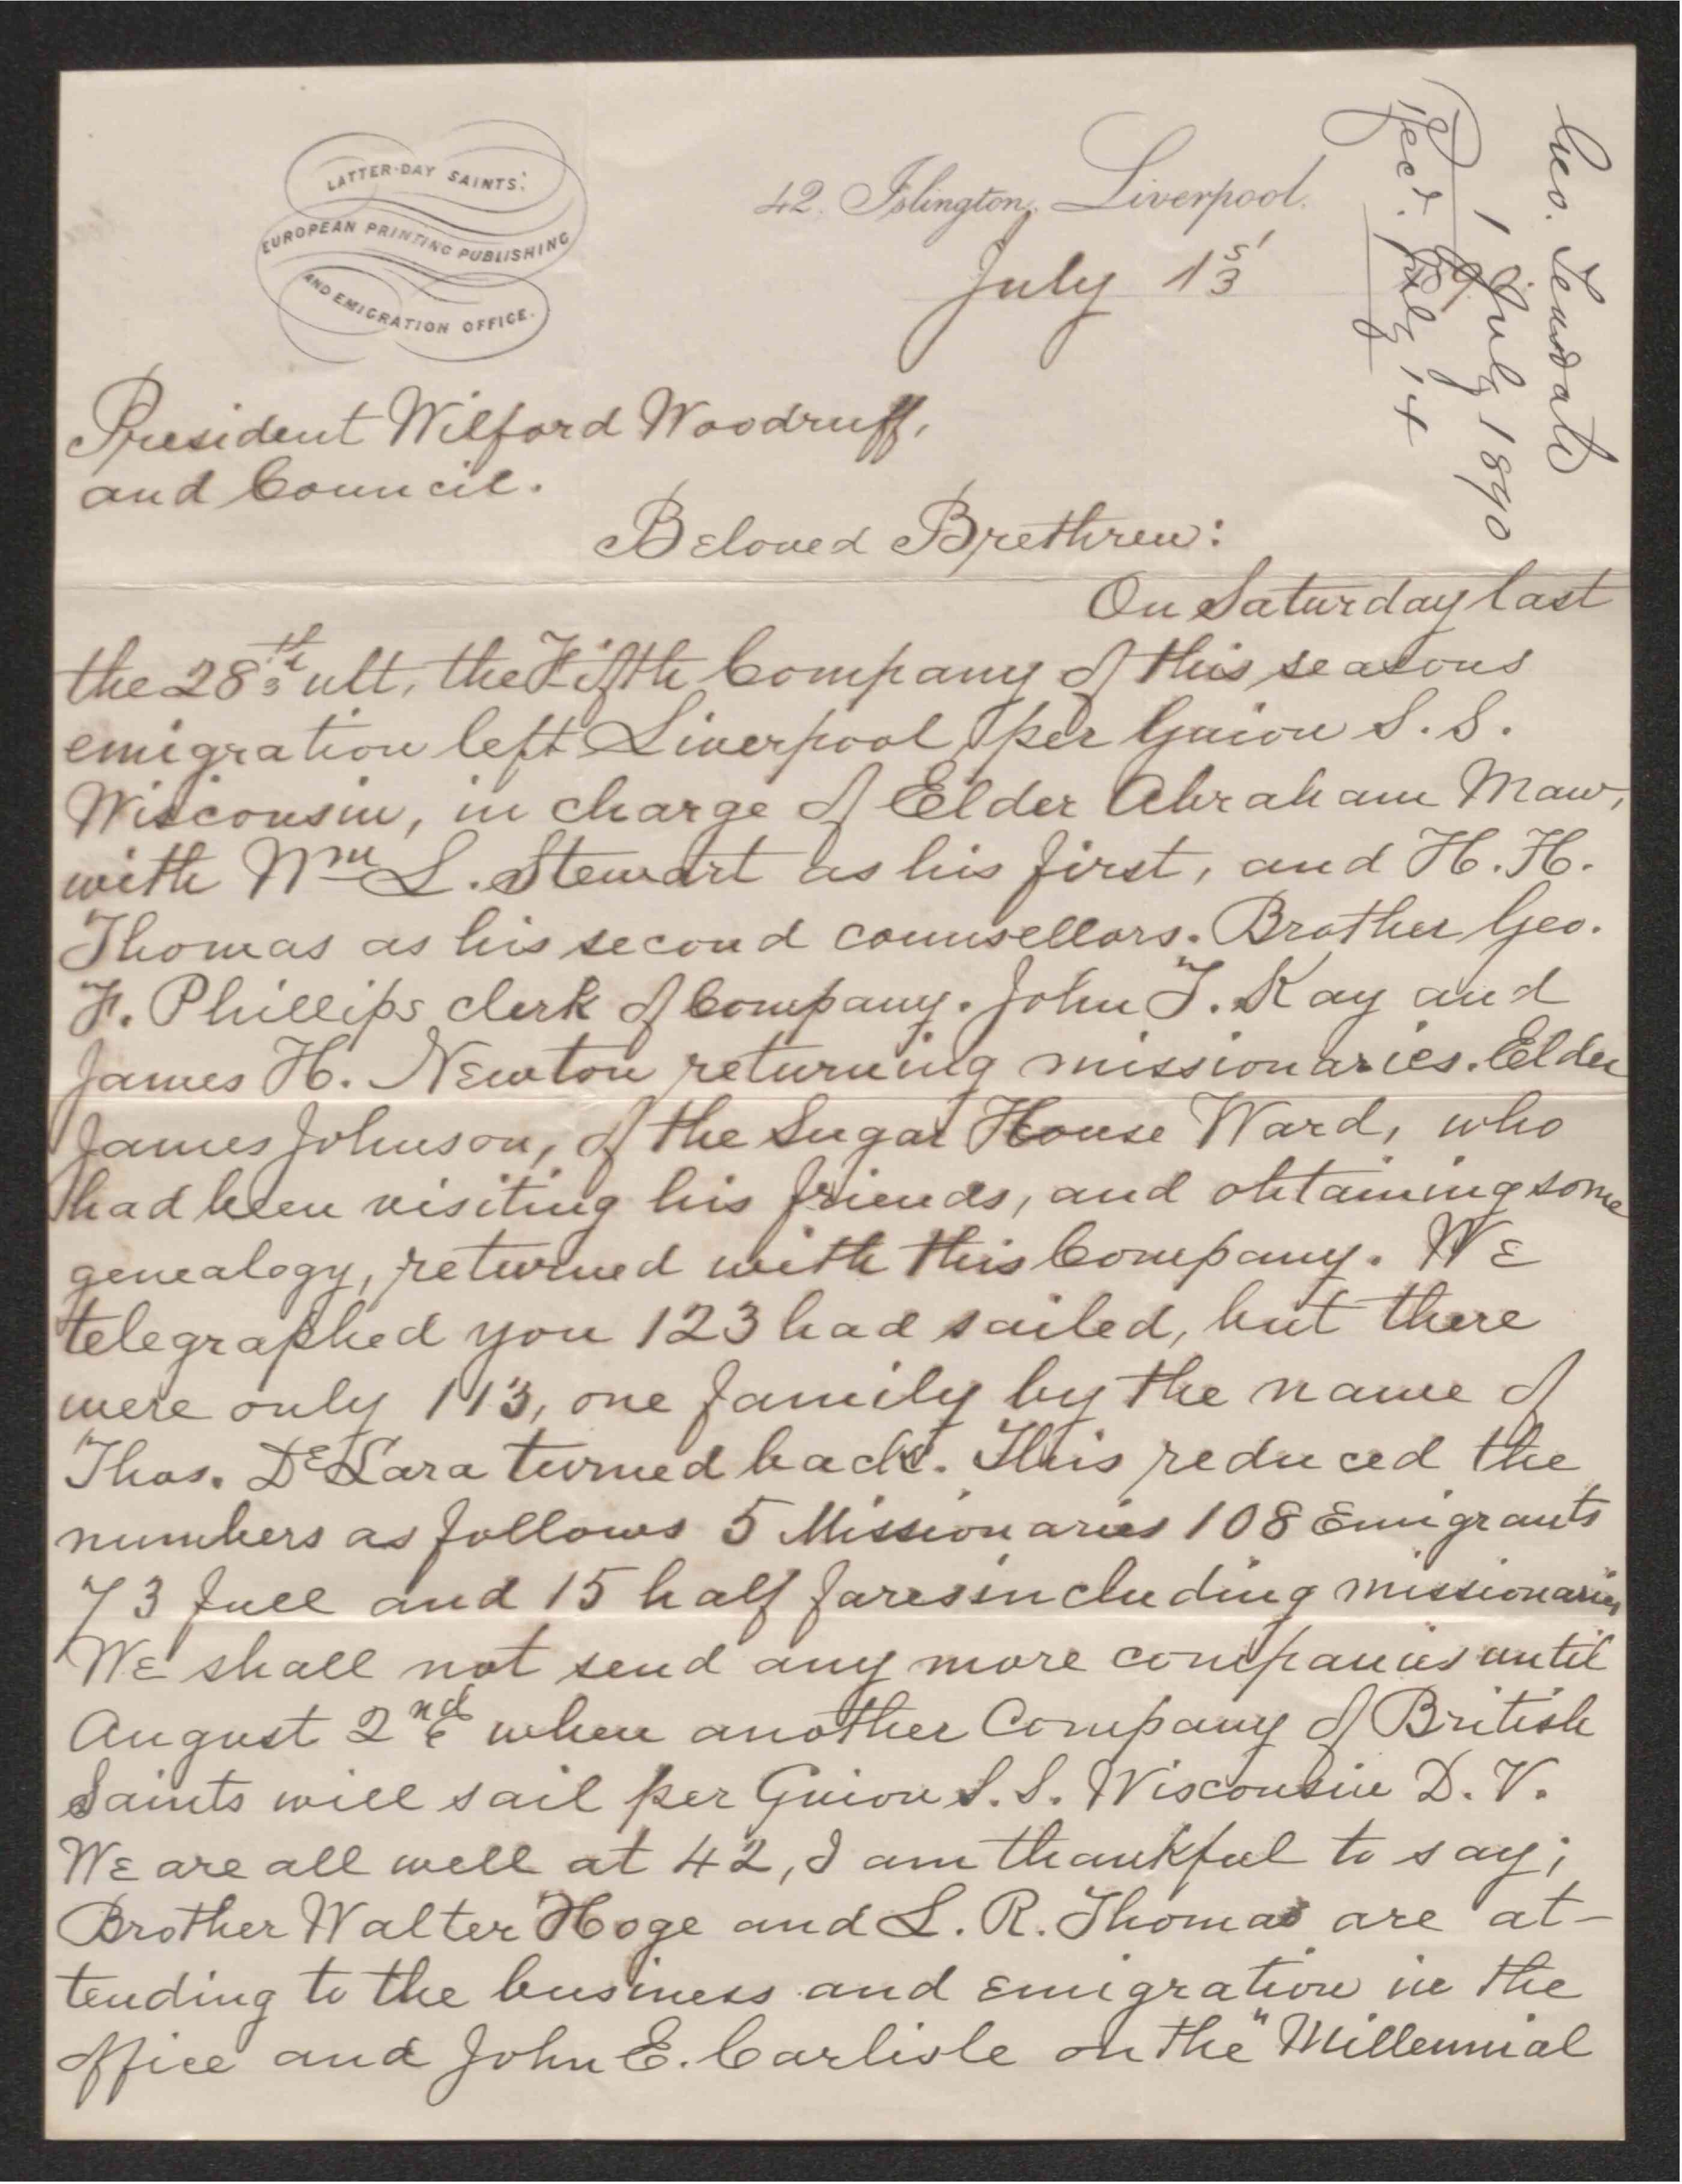 LATTER-DAY SAINTS'
EUROPEAN PRINTING PUBLISHING
AND EMIGRATION OFFICE.
42, Islington, Liverpool.
July 1st
Geo. Teasdale
1 July 1890
Recd. July 14
President Wilford Woodruff,
and Council.
Beloved Brethren:
On Saturday last
the 28th ult, the Fifth Company of this seasons
emigration left Liverpool, per Guion S. S.
Wisconsin, in charge of Elder Abraham Maw,
with Wm L. Stewart as his first, and H. H.
Thomas as his second counsellors. Brother Geo.
F. Phillips clerk of Company. John T. Kay and
James H. Newton returning missionaries. Elder
James Johnson, of the Sugar House Ward, who
had been visiting his friends, and obtaining some
genealogy, returned with this Company. We
telegraphed you 123 had sailed, but there
were only 113, one family by the name of
Thos. De Lara turned back. This reduced the
numbers as follows 5 Missionaries 108 Emigrants
73 full and 15 half fares including missionaries
We shall not send any more companies until
August 2nd when another Company of British
Saints will sail per Guion S. S. Wisconsin D. V.
We are all well at 42, I am thankful to say;
Brother Walter Hoge and L. R. Thomas are at-
tending to the business and emigration in the
office and John E. Carlisle on the "Millennial